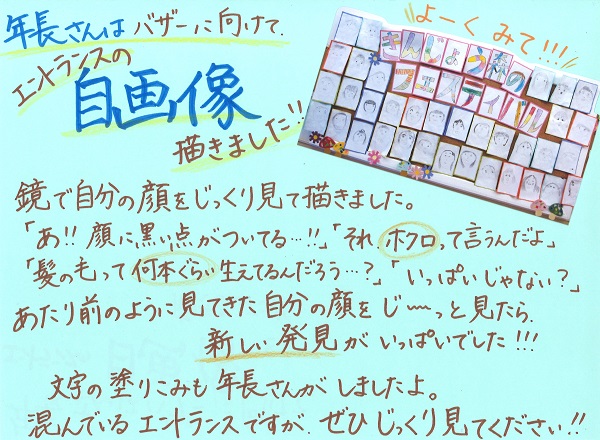 年長さんは バザーに向けて、
エントランスの
自画像
描きました!!
よーく みて!!!
鏡で自分の顔をじっくり見て描きました。
「あ!! 顔に黒い点がついてる…!!」「それ、ホクロって言うんだよ」
「髪の毛って何本ぐらい生えてるんだろう…?」「いっぱいじゃない?」
あたり前のように見てきた自分の顔をじ〜っと見たら、
新しい発見がいっぱいでした!!!
文字の塗りこみも年長さんがしましたよ。
混んでいるエントランスですが、ぜひじっくり見てください!!